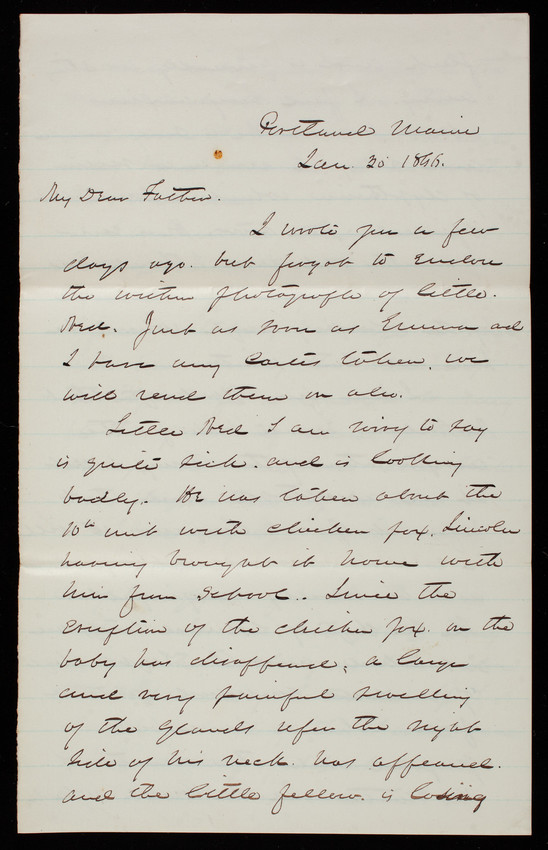 Portland Maine
Jan. 30 1866.
My Dear Father.
I wrote you a few
days ago. but forgot to enclose
the within photograph of little.
Ned. Just as soon as Emma and
I have any cartes taken, we
will send them on also.
Little Ned I am sorry to say
is quite sick. and is looking
badly. He was taken about the
10th with chicken pox. Lincoln
having brought it home with
him from school.. Since the
eruption of the chicken pox. on the
baby has disappeared, a large
and very painful swelling
of the glands upon the right
side of his neck. has appeared.
and the little fellow. is losing